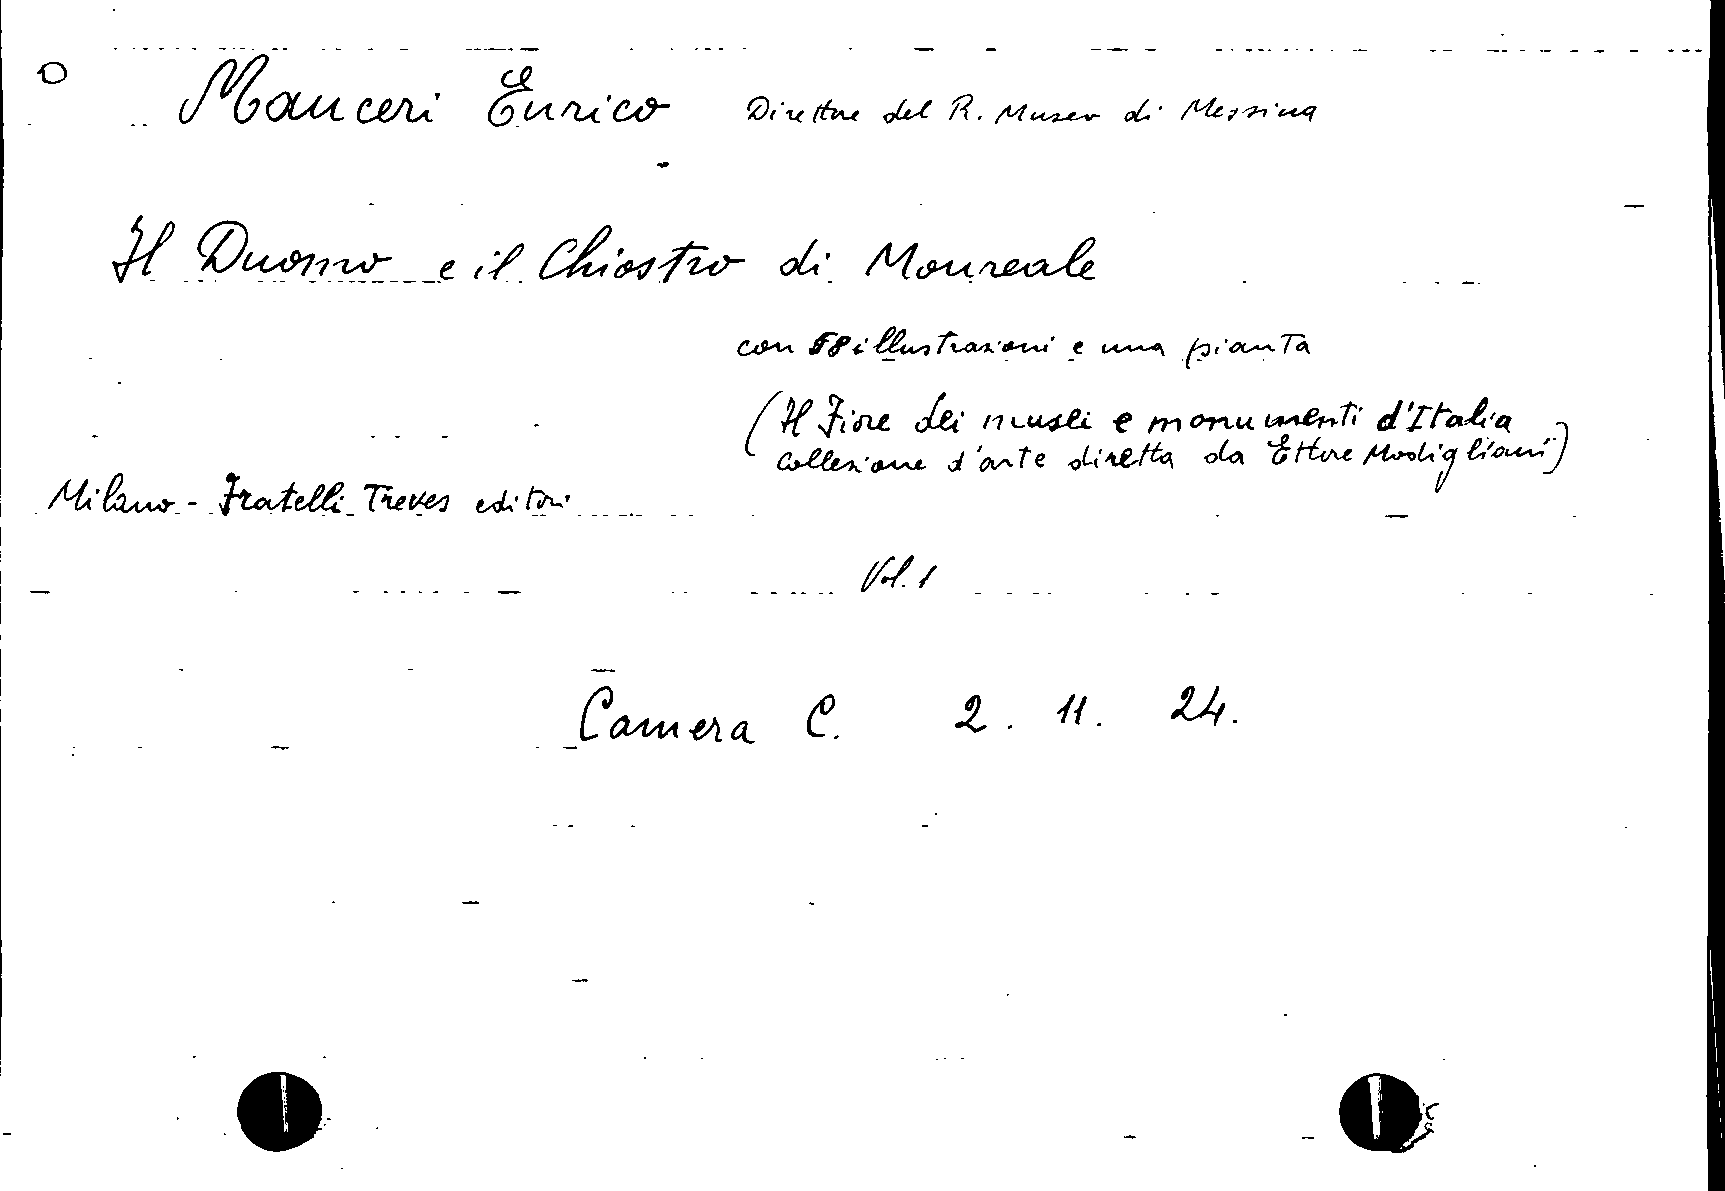 Mauceri Enrico Direttore del R. Museo di Messina
Il Duomo e il Chiostro di Monreale
con 58 illustrazioni e una pianta
(Il Fiore dei musei e monumenti d'Italia
collezione d'arte diretta da Ettore Modigliani)
Milano - Fratelli Treves editori
Vol. 1
Camera C. 2. 11. 24.